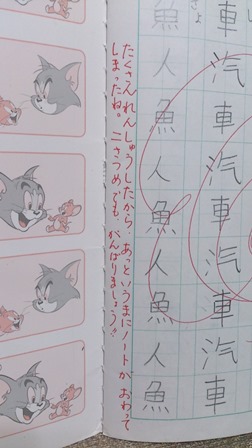 車汽車汽車汽車汽車
魚人魚人魚人魚人魚
たくさんれんしゅうしたから、あっというまにノートがおわって
しまったね。二さつめでも、がんばりましょう!!